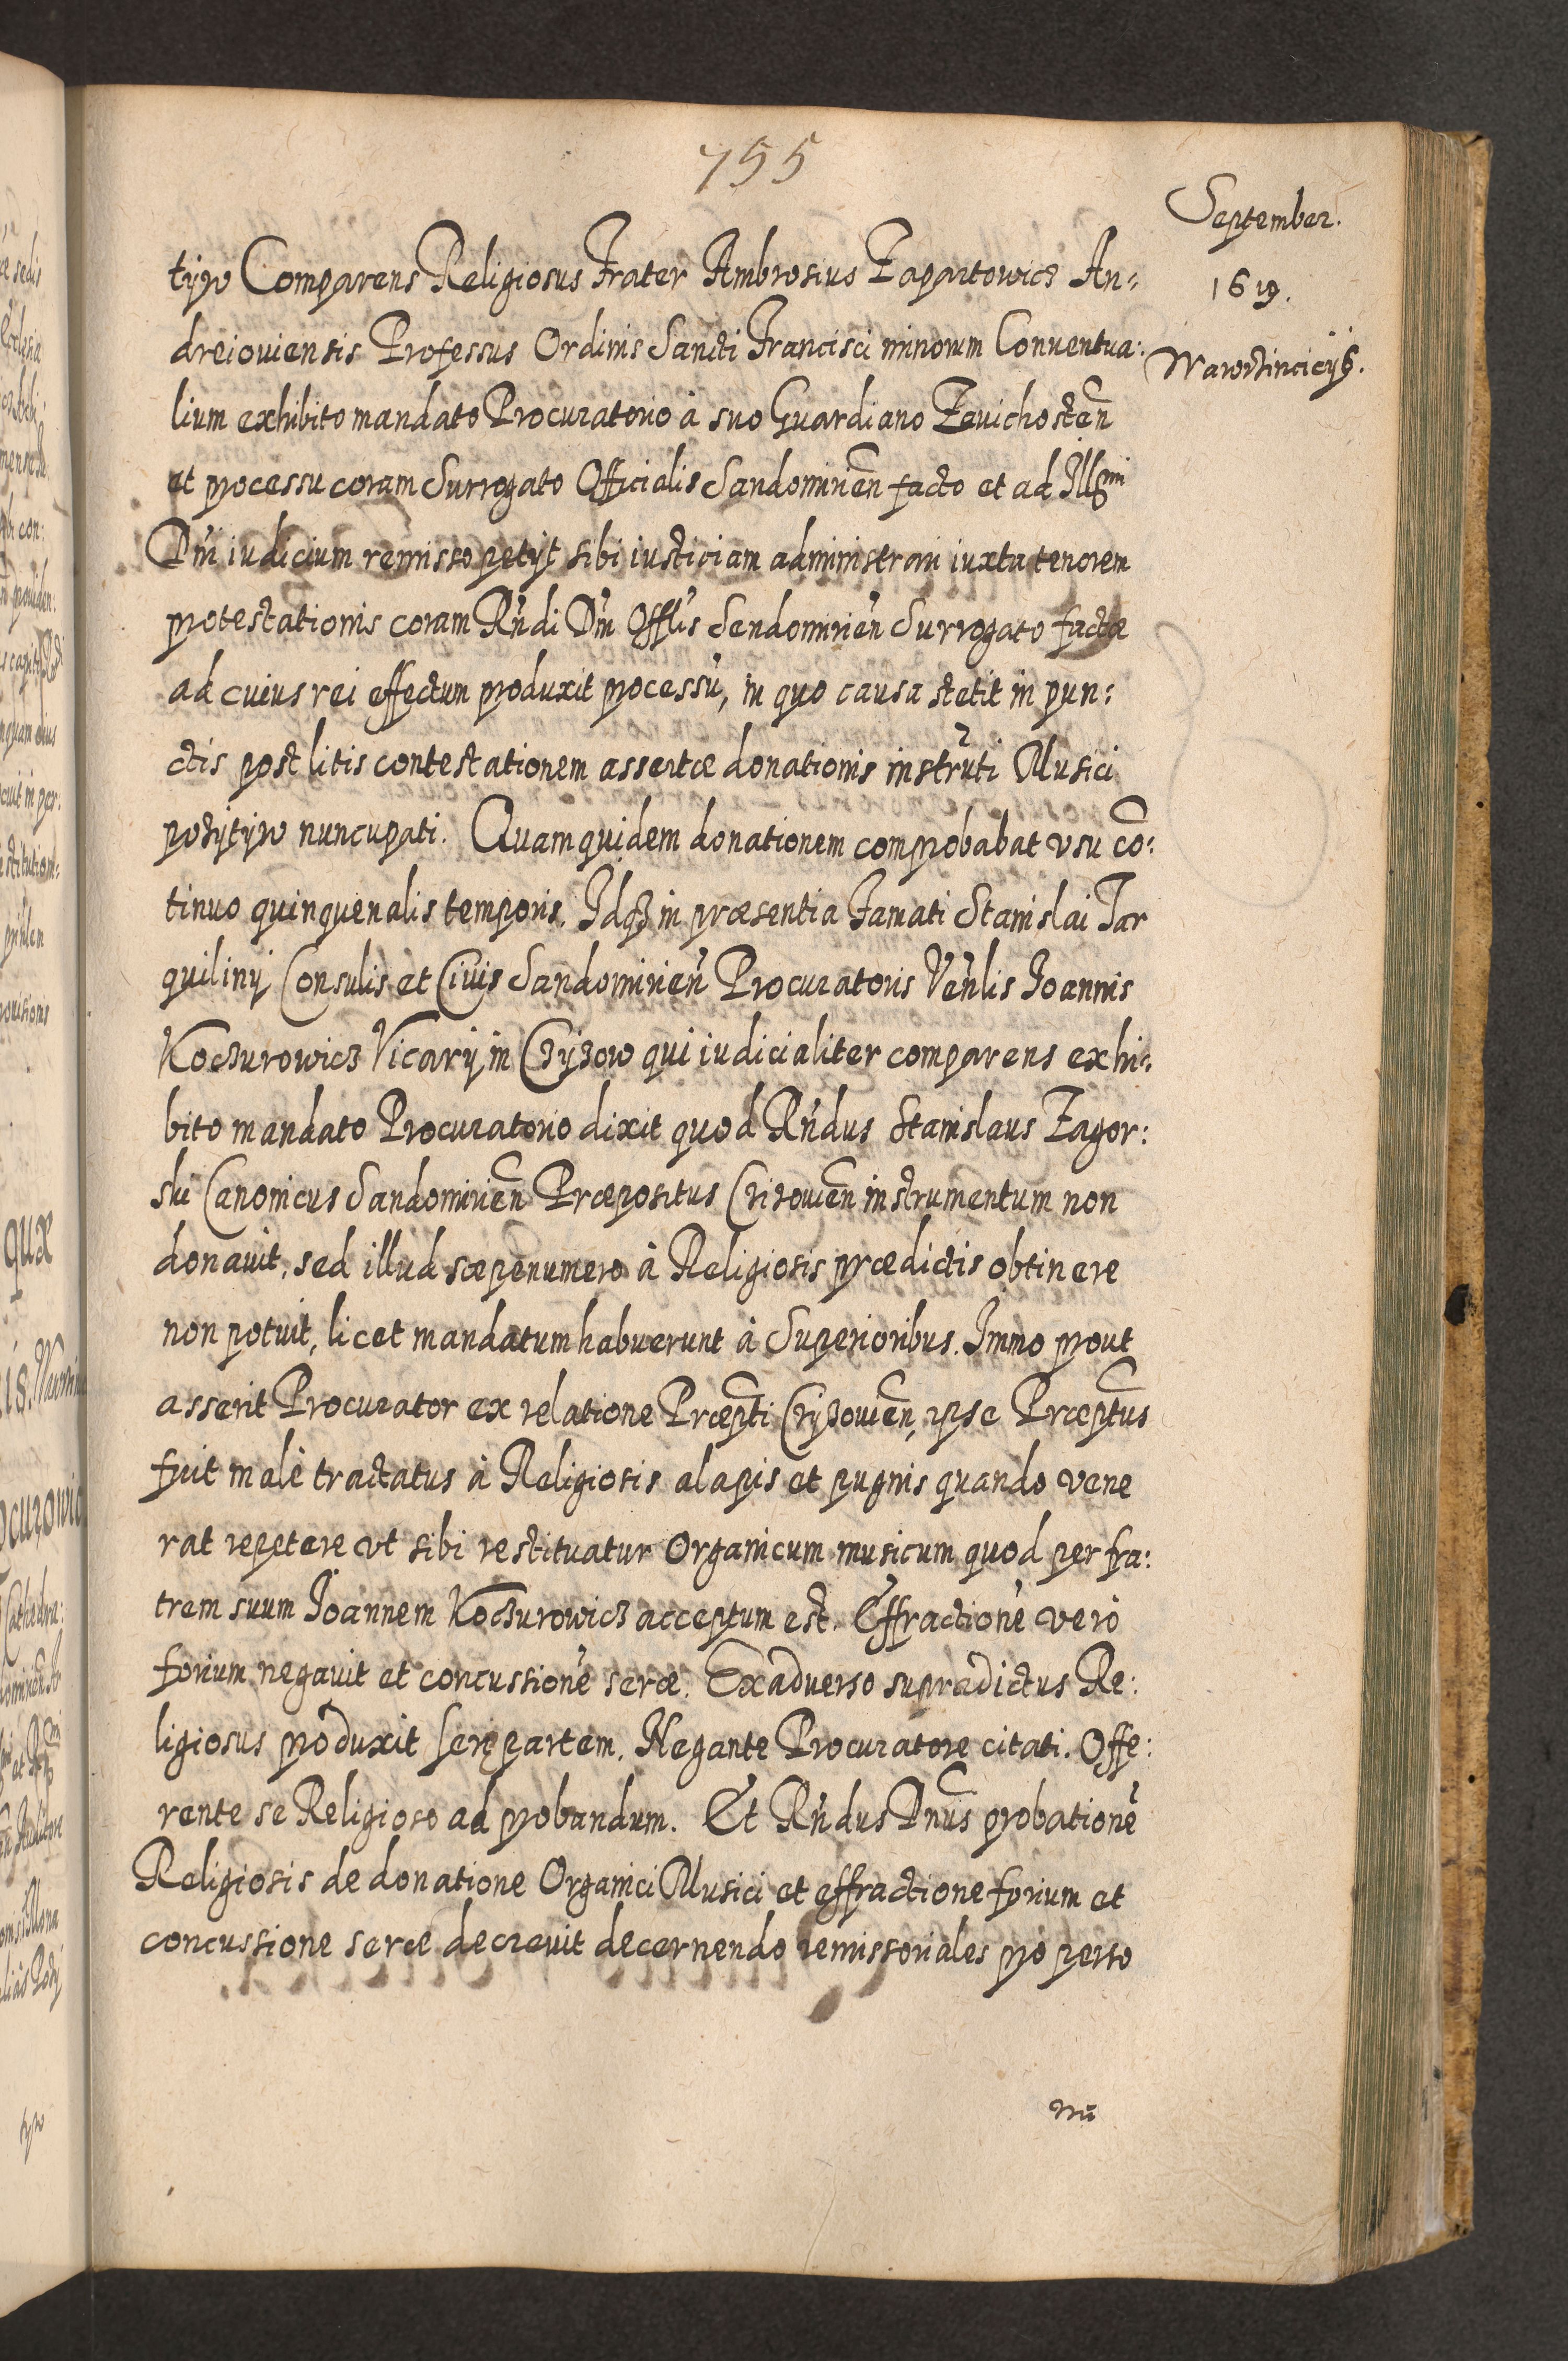 755
September.
1619.
Wawrzinciciis.
tyw Comparens Religiosus Frater Ambrosius Zapartowicz An:
dreiouiensis Professus Ordinis Sancti Francisci minorum Conuentua:
lium exhibito mandato Procuratorio à suo Guardiano Zauichosten
et processu coram Surrogato Officialis Sandomirien facto et ad Illmi
Dni iudicium remisso petijt sibi iusticiam administrari iuxta tenorem
protestationis coram Rndi Dni Offlis Sendomirien Surrogato factæ
ad cuius rei effectum produxit processu, in quo causa stetit in pun:
ctis post litis contestationem assertæ donationis instruti Musici
pozytyw nuncupati. Quam quidem donationem comprobabat vsu co:
tinuo quinquenalis temporis. Idqz in præsentia Famati Stanislai Tar
quiliny Consulis et Ciuis Sandomirien Procuratoris Venlis Joannis
Koczurowicz Vicarij in Czyzow qui iudicialiter comparens exhi:
bito mandato Procuratorio dixit quod Rndus Stanislaus Zagor:
ski Canonicus Sandomirien Præpositus Czizouien instrumentum non
donauit, sed illud sæpenumero à Religiosis prædictis obtinere
non potuit, licet mandatum habuerunt à Superioribus. Immo prout
asserit Procurator ex relatione Præpti Czyzouien, ipse Præptus
fuit malè tractatus à Religiosis alapis et pugnis quando vene
rat repetere vt sibi restituatur Organicum musicum quod per fra:
trem suum Joannem Koczurowicz acceptum est. Effractione verò
forium negauit et concussione seræ. Ex aduerso supradictus Re:
ligiosus produxit seræ partem. Negante Procuratore citati. Offe:
rente se Religioso ad probandum. Et Rndus Dnus probatione
Religiosis de donatione Organici Musici et effractione forium et
concussione seræ decreuit decernendo remissoriales pro perso
nis